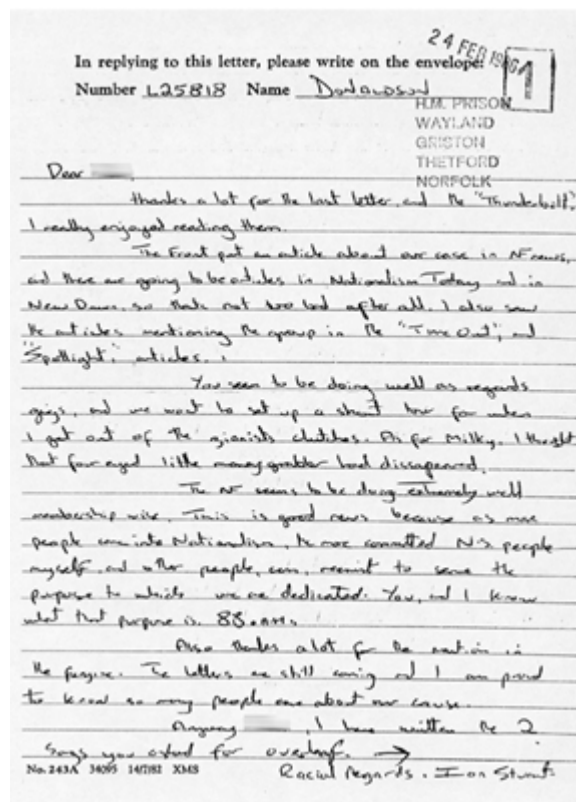 24 FEB 1986
1
In replying to this letter, please write on the envelope:
Number L25818 Name Donaldson
H.M. PRISON
WAYLAND
GRISTON
THETFORD
NORFOLK
Dear
thanks a lot for the last letter, and the "Thunderbolt".
I really enjoyed reading them.
The Front put an article about our case in NF news,
and there are going to be articles in Nationalism Today and in
New Dawn, so thats not too bad after all. I also saw
the articles mentioning the group in the "Time Out", and
"Spotlight", articles.
You seem to be doing well as regards
gigs, and we want to set up a short tour for when
I get out of the zionists clutches. As for Milky, I thought
that four eyed little money grabber had dissapeared.
The NF seems to be doing extremely well
membership wise. This is good news because as more
people come into Nationalism, the more committed N.S people
myself, and other people, can, recruit to serve the
purpose to which we are dedicated. You, and I know
what that purpose is. 88.
Also thanks a lot for the mention in
the fanzine. The letters are still coming and I am proud
to know so many people care about our cause.
Anyway , I have written the 2
songs you asked for overleaf. →
No. 243A 34095 14/7/82 XMS
Racial Regards. Ian Stuart.